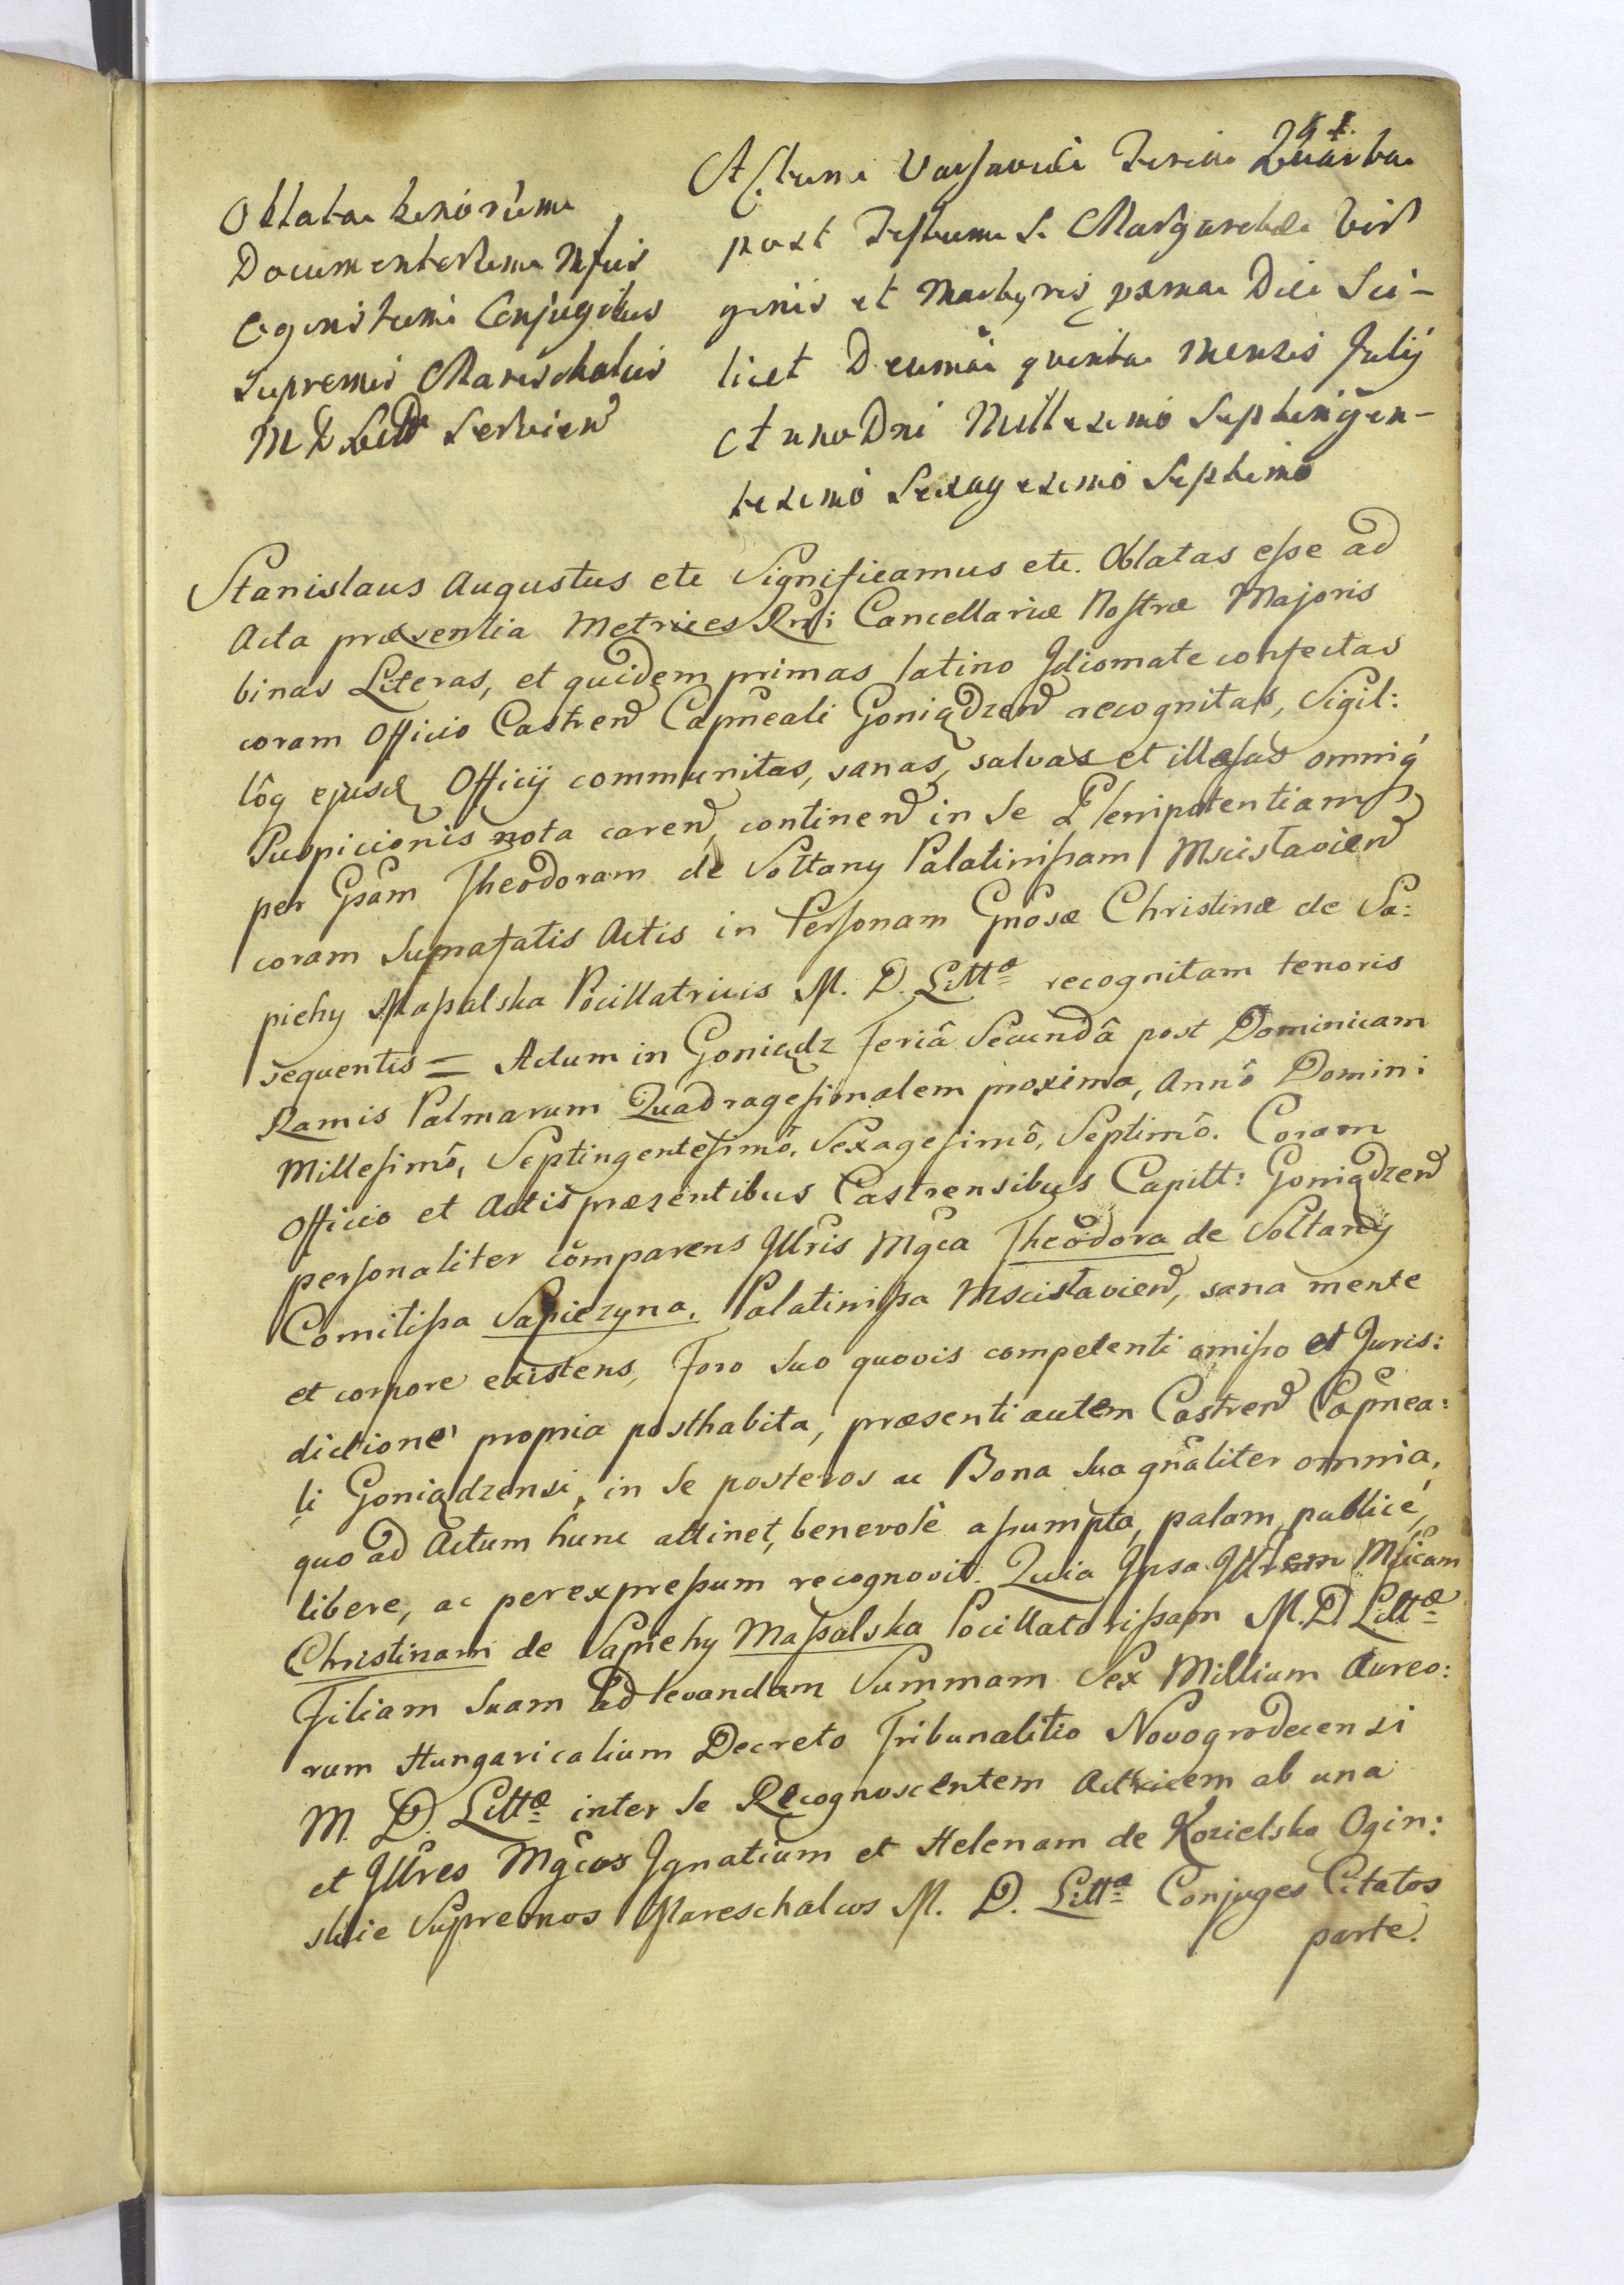 41.
Oblata binorum
Documentorum Mfcis
Oginskim Conjugibus
Supremis Mareschalcis
M D Litt Servien
Actum Varsaviæ Feria Quarta
post Festum S. Margarethæ Vir
ginis et Martyris pxma Die Sci-
licet Decima quinta Mensis Julij
Anno Dni Millesimo Septingen-
tesimo Sexagesimo Septimo
Stanislaus Augustus etc Significamus etc. Oblatas esse ad
Acta præsentia Metrices Rni Cancellariæ Nostræ Majoris
binas Literas, et quidem primas latino Idiomate confectas
coram Officio Castren Capneali Goniądzen recognitas, Sigil:
lôq ejusd Officij communitas, sanas, salvas et illæsas omniq
Suspicionis nota caren, continen in se Plenipotentiam
per Gsam Theodoram de Sołtany Palatinissam Mscistavien
coram Suprafatis Actis in Personam Gnosæ Christinæ de Sa:
piehy Massalska Pocillatricis M. D. Littæ recognitam tenoris
sequentis = Actum in Goniądz Feriâ Secundâ post Dominicam
Ramis Palmarum Quadragesimalem proxima, Annô Domini
Millesimô, Septingentesimô, Sexagesimô, Septimô. Coram
Officio et Actis præsentibus Castrensibus Capitt: Goniądzen
personaliter comparens Jllris Mgca Theodora de Sołtany
Comitissa Sapiezyna, Palatinissa Mscistavien, sana mente
et corpore existens, Foro suo quovis competenti omisso et Juris:
dictione propria posthabita, præsenti autem Castren Capnea:
li Goniądzensi, in se posteros ac Bona sua gnâliter omnia,
quo ad Actum hunc attinet, benevolè assumpta, palam publicé,
libere, ac per expressum recognovit. Quia Ipsa Jllrem Mficam
Christinam de Sapiehy Massalska Pocillatorissam M. D. Littæ
Filiam suam ad levandam Summam Sex Millium Aureo:
rum Hungaricalium Decreto Tribunalitio Novogrodecensi
M. D. Littæ inter se Recognoscentem Actricem ab una
et Jllres Mgcos Ignatium et Helenam de Kozielsko Ogin:
skie Supremos Mareschalcos M. D. Littæ Conjuges Citatos
parte.